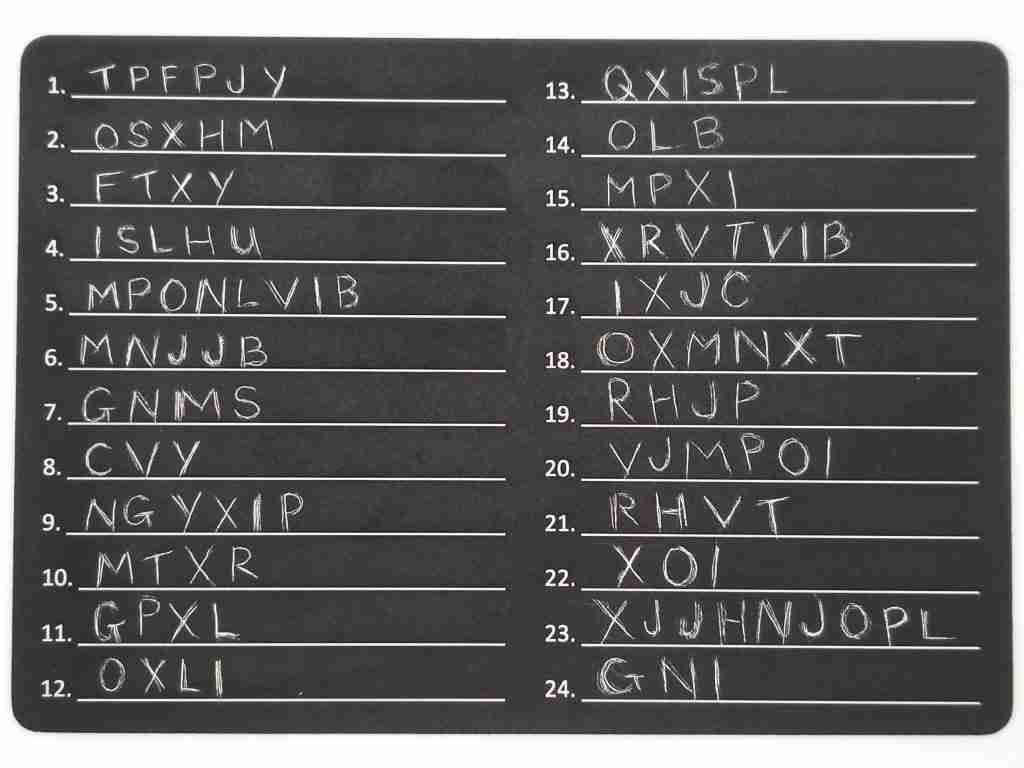 1. TPFPJY
2. OSXHM
3. FTXY
4. ISLHU
5. MPONLVIB
6. MNJJB
7. GNMS
8. CVY
9. NGYXIP
10. MTXR
11. GPXL
12. OXLI
13. QXISPL
14. OLB
15. MPXI
16. XRVTVIB
17. IXJC
18. OXMNXT
19. RHJP
20. VJMPOI
21. RHVT
22. XOI
23. XJJHNJOPL
24. GNI